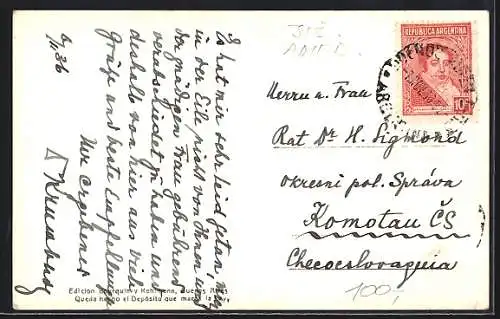 6/11 36
Es hat mir sehr leid getan, mich
in der Eile nicht von Ihnen und
der gnädigen Frau gebührend
verabschiedet zu haben und
deshalb von hier aus viele
Grüße und beste Empfehlung
Ihr ergebener
Krumberg
REPUBLICA ARGENTINA
10
BUENOS AIRES
Herrn u. Frau
Rat Dr H. Sigmond
okresni pol. Správa
Komotau ČS
Checoeslovaquia
100,-
Edicion Bourquin y Kohlmann, Buenos Aires
Queda hecho el Depósito que marca la ley